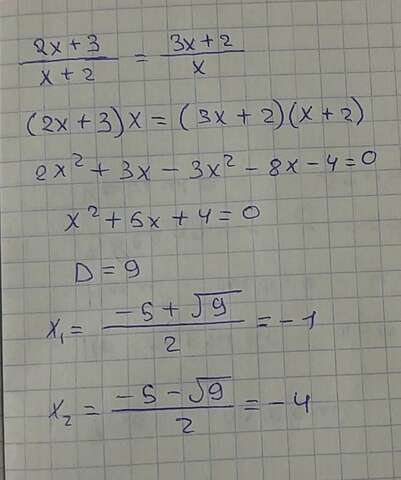 (2x+3)/(x+2) = (3x+2)/x
(2x+3)x = (3x+2)(x+2)
2x² + 3x - 3x² - 8x - 4 = 0
x² + 5x + 4 = 0
D = 9
x₁ = (-5+√9)/2 = -1
x₂ = (-5-√9)/2 = -4